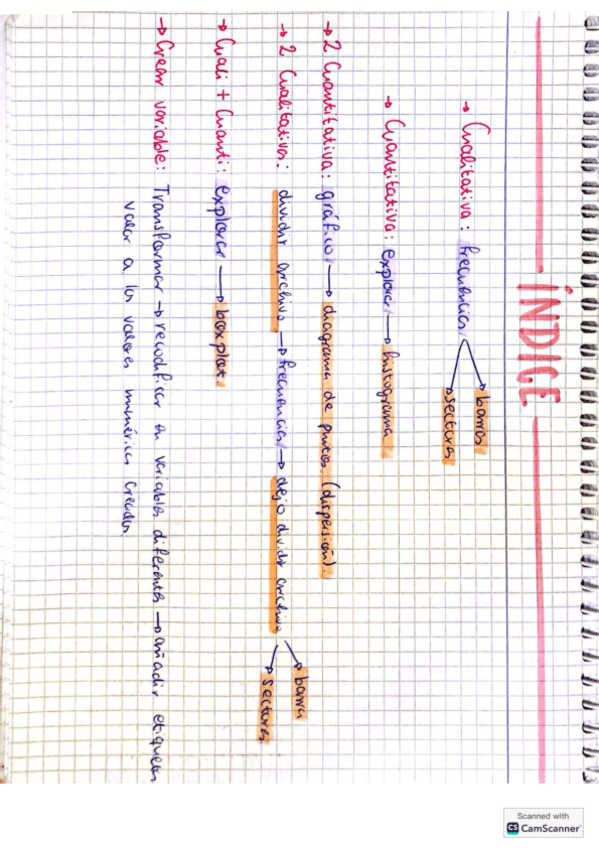 ÍNDICE
→ Cualitativa: frecuencias → barras
→ sectores
→ Cuantitativa: explorar → histograma
→ 2 Cuantitativa: gráfico → diagrama de puntos (dispersión).
→ 2 Cualitativas: dividir archivo → frecuencias → dejo dividir archivo → barra
→ sectores
→ Cuali + Cuanti: explorar → boxplot
→ Crear variable: Transformar → recodificar en variables diferentes → añadir etiquetas
valor a los valores numéricos creados.
Scanned with
CS CamScanner